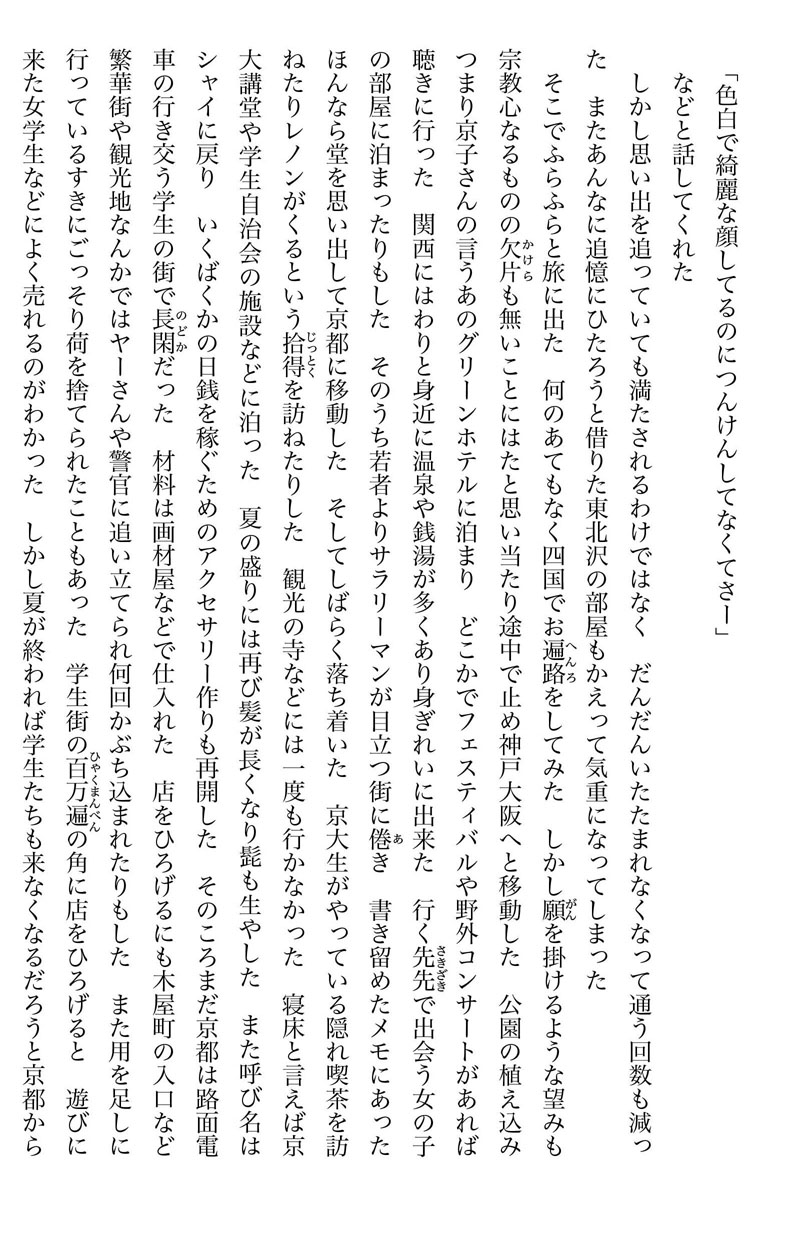 「色白で綺麗な顔してるのにつんけんしてなくてさー」
などと話してくれた
　しかし思い出を追っていても満たされるわけではなく　だんだんいたたまれなくなって通う回数も減っ
た　またあんなに追憶にひたろうと借りた東北沢の部屋もかえって気重になってしまった
　そこでふらふらと旅に出た　何のあてもなく四国でお遍路へんろをしてみた　しかし願がんを掛けるような望みも
宗教心なるものの欠片かけらも無いことにはたと思い当たり途中で止め神戸大阪へと移動した　公園の植え込み
つまり京子さんの言うあのグリーンホテルに泊まり　どこかでフェスティバルや野外コンサートがあれば
聴きに行った　関西にはわりと身近に温泉や銭湯が多くあり身ぎれいに出来た　行く先先さきざきで出会う女の子
の部屋に泊まったりもした　そのうち若者よりサラリーマンが目立つ街に倦あき　書き留めたメモにあった
ほんなら堂を思い出して京都に移動した　そしてしばらく落ち着いた　京大生がやっている隠れ喫茶を訪
ねたりレノンがくるという拾得じっとくを訪ねたりした　観光の寺などには一度も行かなかった　寝床と言えば京
大講堂や学生自治会の施設などに泊った　夏の盛りには再び髪が長くなり髭も生やした　また呼び名は
シャイに戻り　いくばくかの日銭を稼ぐためのアクセサリー作りも再開した　そのころまだ京都は路面電
車の行き交う学生の街で長閑のどかだった　材料は画材屋などで仕入れた　店をひろげるにも木屋町の入口など
繁華街や観光地なんかではヤーさんや警官に追い立てられ何回かぶち込まれたりもした　また用を足しに
行っているすきにごっそり荷を捨てられたこともあった　学生街の百万遍ひゃくまんべんの角に店をひろげると　遊びに
来た女学生などによく売れるのがわかった　しかし夏が終われば学生たちも来なくなるだろうと京都から